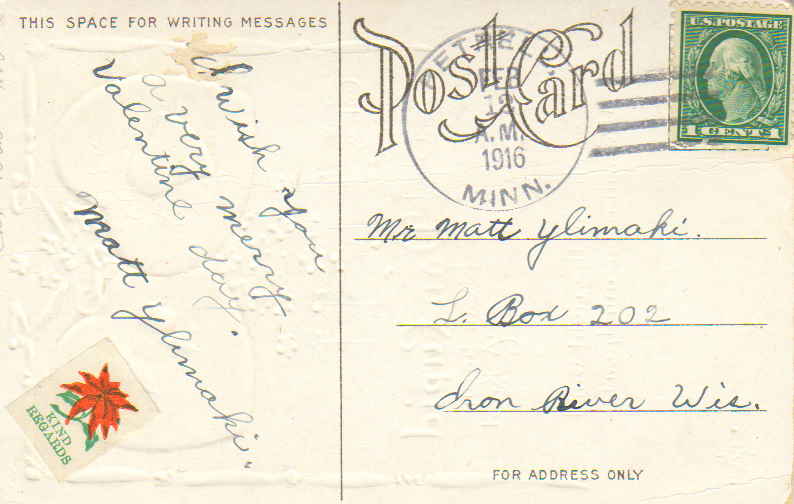 THIS SPACE FOR WRITING MESSAGES
I wish you
a very merry
Valentine day.
Matt Ylimaki.
KIND
REGARDS
Post Card
FEB
12
A.M.
1916
MINN.
U.S. POSTAGE
1 CENT 1
Mr Matt Ylimaki.
L. Box 202
Iron River Wis.
FOR ADDRESS ONLY